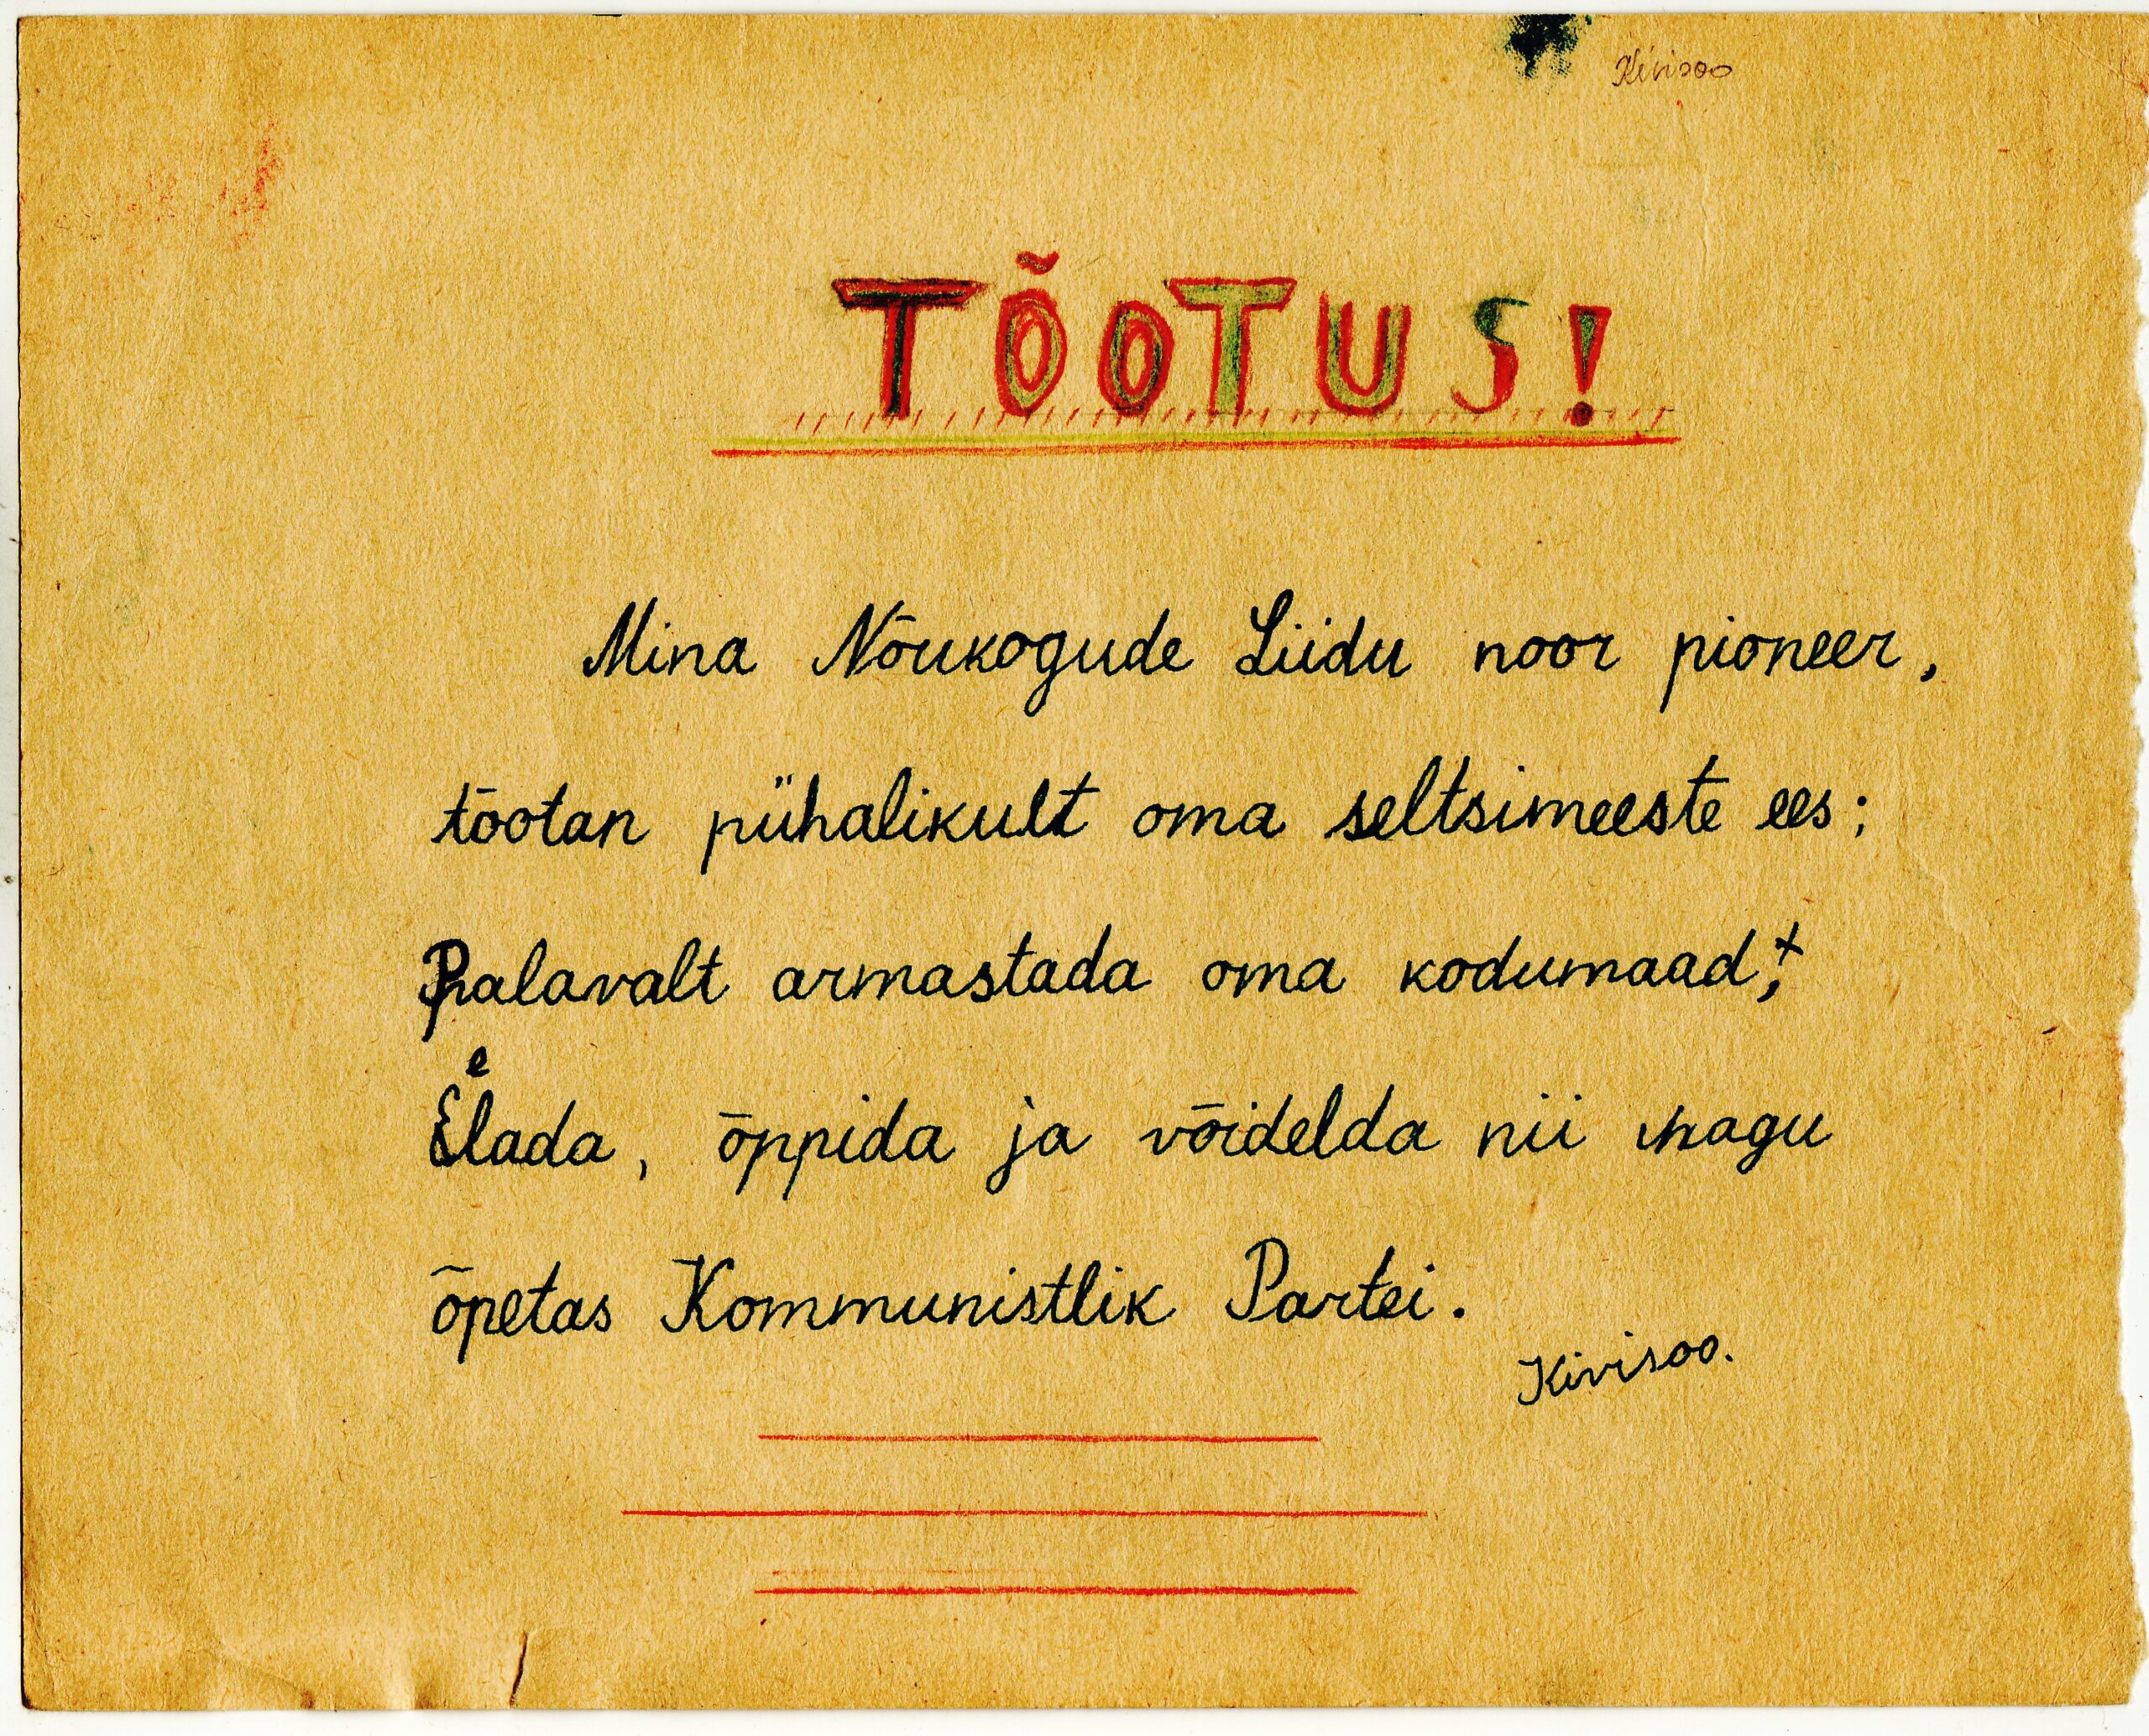 Kivisoo
TÕOTUS!
Mina Nõukogude Liidu noor pioneer,
tõotan pühalikult oma seltsimeeste ees:
Palavalt armastada oma kodumaad,+
e
Elada, õppida ja võidelda nii nagu
õpetas Kommunistlik Partei.
Kivisoo.